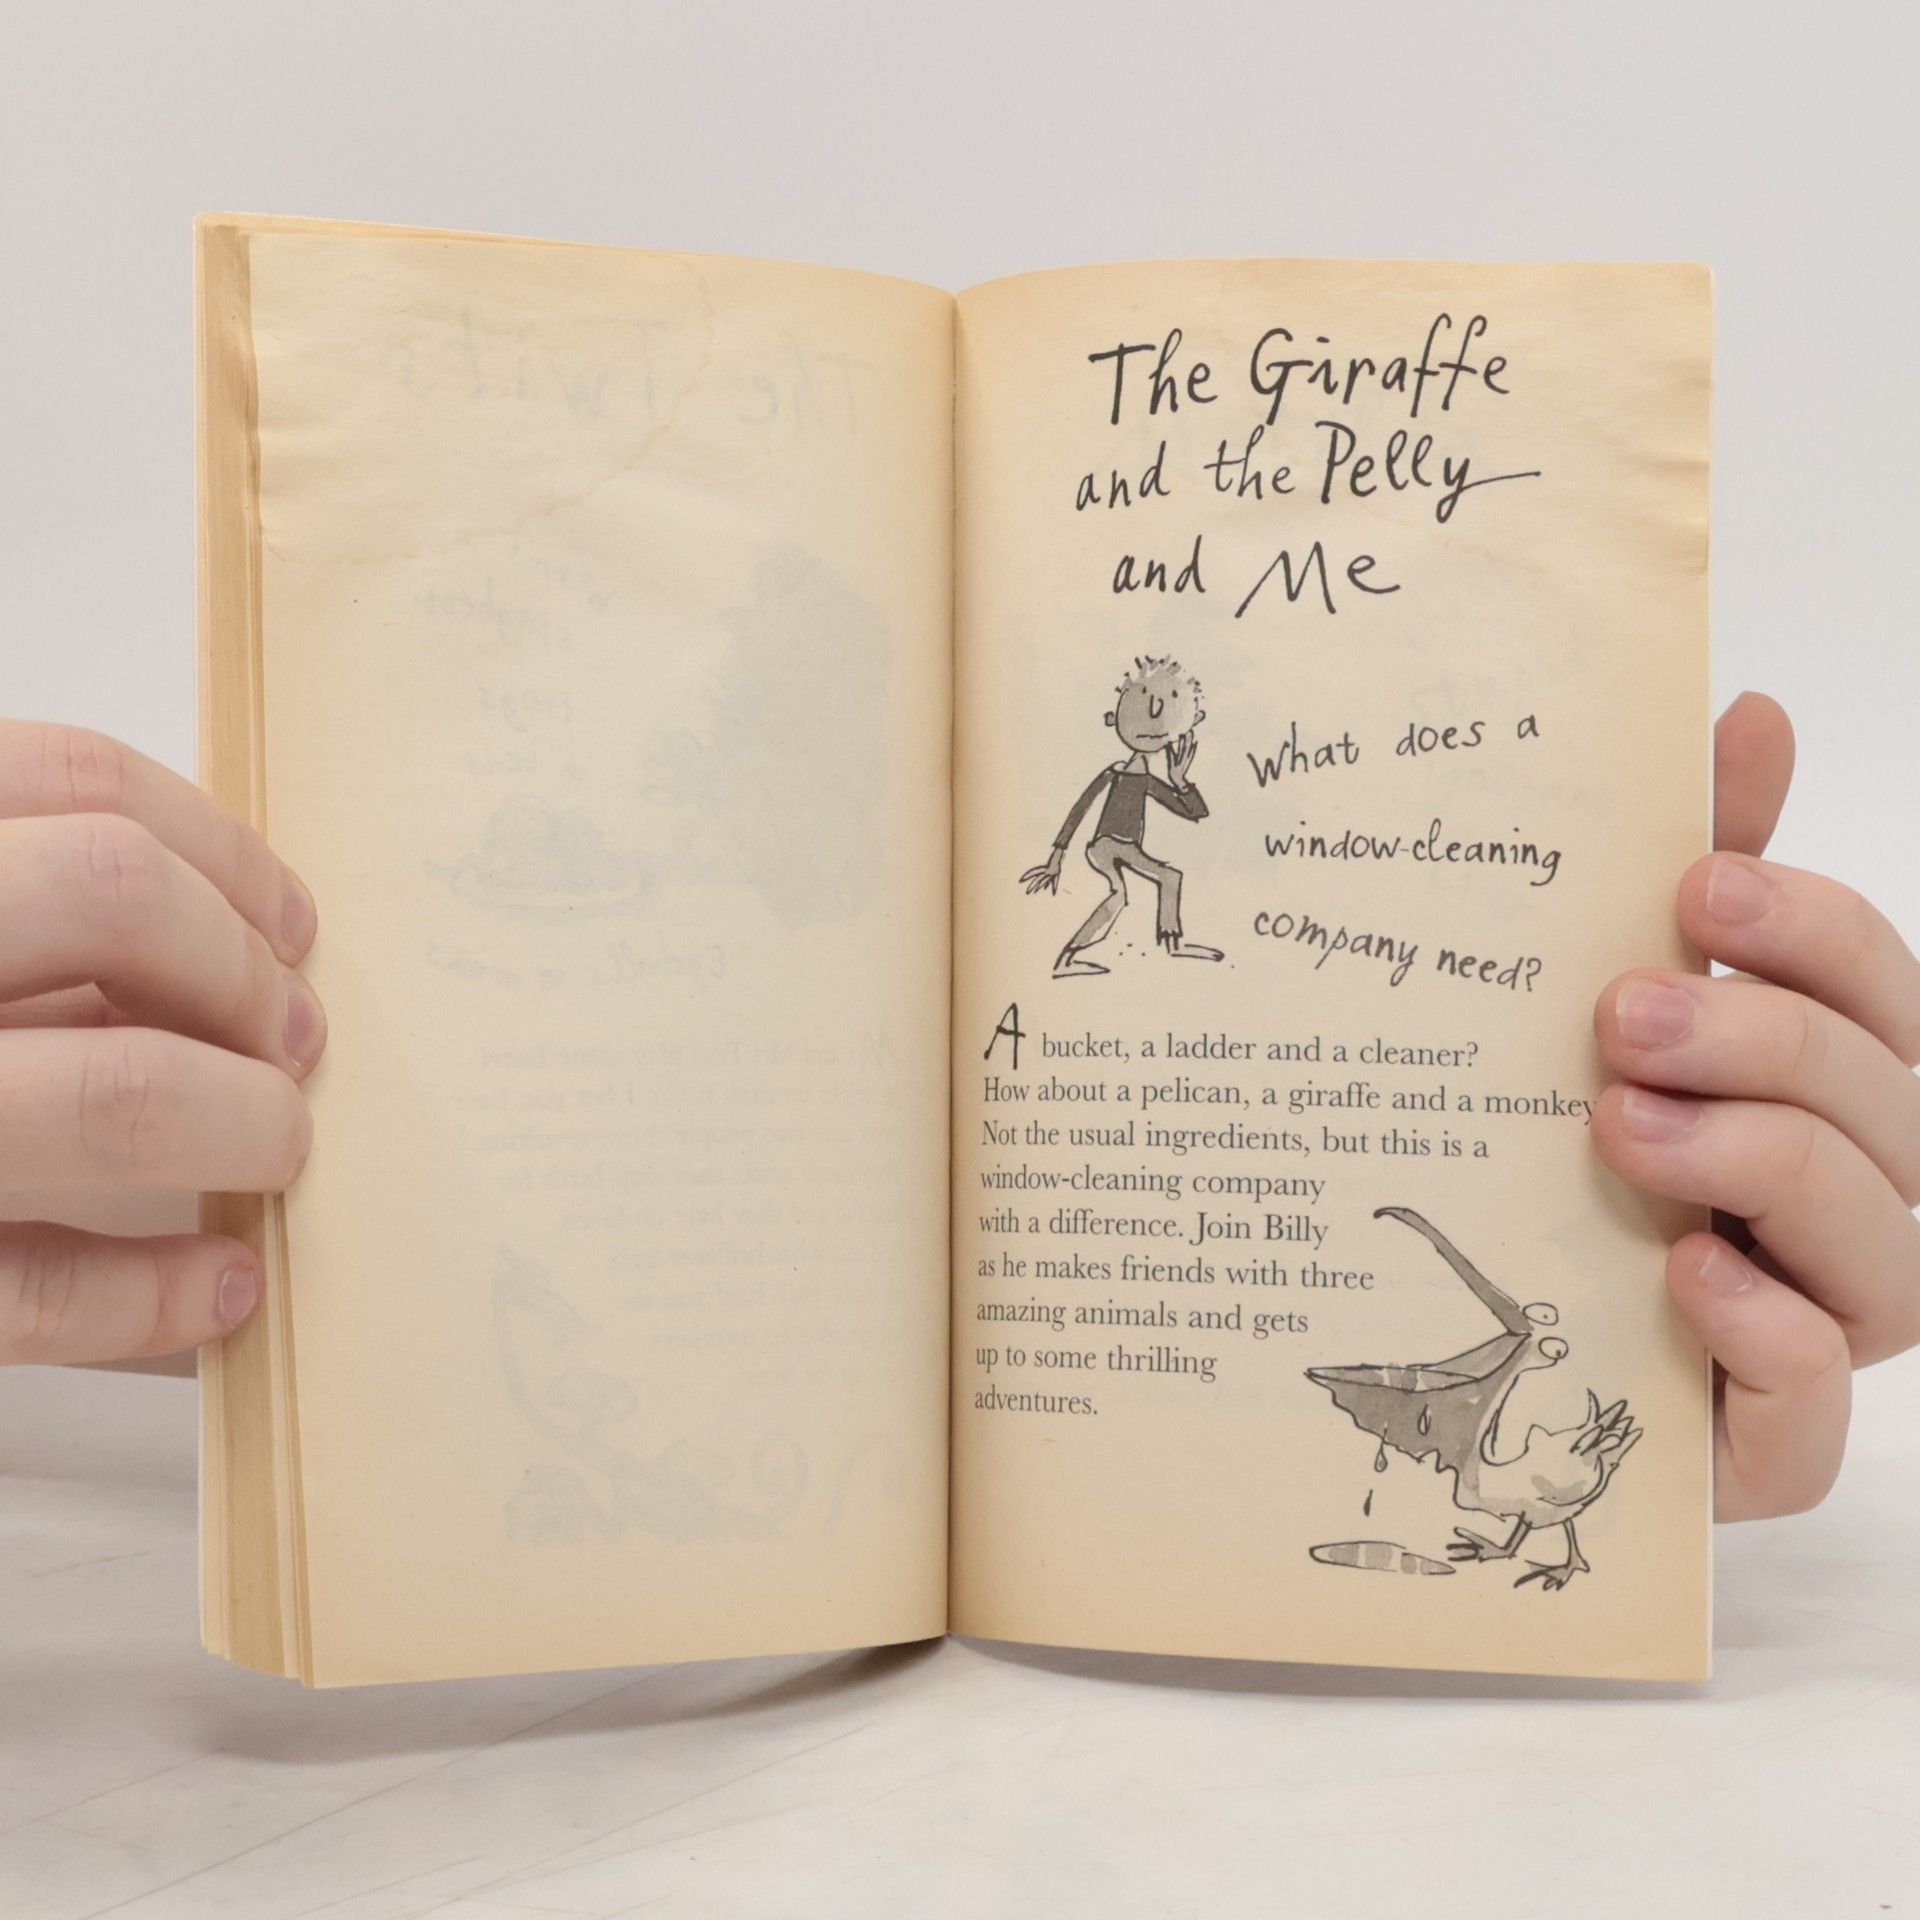 The Giraffe
and the Pelly
and Me
What does a
window-cleaning
company need?
A bucket, a ladder and a cleaner?
How about a pelican, a giraffe and a monkey
Not the usual ingredients, but this is a
window-cleaning company
with a difference. Join Billy
as he makes friends with three
amazing animals and gets
up to some thrilling
adventures.